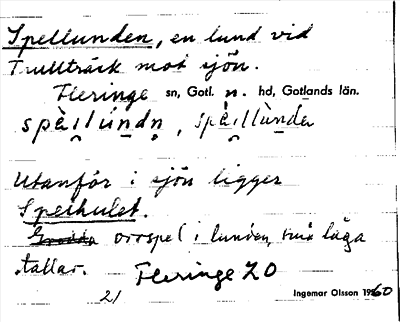 Spellunden, en lund vid
Trullträsk mot sjön.
Fleringe sn, Gotl. n. hd, Gotlands län.
spèi̯llùndn̥, spèi̯llùnda
Utanför i sjön ligger
Speihulet.
orrspel i lunden, små låga
tallar. Fleringe ZO
21 Ingemar Olsson 1960